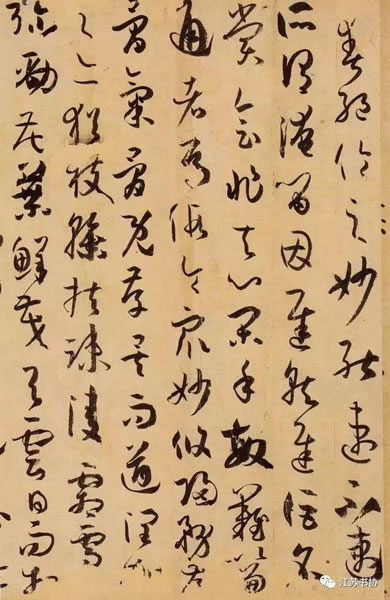 爽絕倫之妙能速不速
所謂淹留因遲就遲詎名
賞會非其心閑手敏難以兼
通者焉假令眾妙攸歸務存
骨氣骨既存矣而遒潤加
之亦猶枝幹扶疏凌霜雪而
彌勁花葉鮮茂與雲日而相
江苏书协